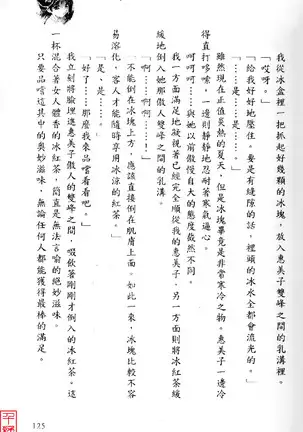 我從冰盒裡一把抓起好幾顆的冰塊，放入惠美子雙峰之間的乳溝裡。
「哎呀。」
「給我好好地壓住。要是有縫隙的話，裡頭的冰水全都會流光的。」
「……是……是。」
雖然現在正值炎熱的夏天，但是冰塊畢竟是非常寒冷之物。惠美子一邊冷
得直打哆嗦，一邊則靜靜地忍耐著寒氣逼心。
呵呵呵……與她以前傲慢自大的態度截然不同。
我一方面滿足地凝視著已經完全順從我的惠美子，另一方面則將冰紅茶緩
緩地倒入她那傲人雙峰之間的乳溝。
「啊……啊啊……！」
「不能倒在冰塊上方，應該直接倒在肌膚上面。如此一來，冰塊比較不容
易溶化，客人才能隨時享用冰涼的紅茶。」
「是、是……。」
「好了……那麼我來品嚐看看吧。」
我立刻將臉埋進惠美子雙峰之間，啜飲著剛剛才倒入的冰紅茶。這
一杯混合著女人體香的冰紅茶，簡直是無法言喻的絕妙滋味。
只要品嚐這其中的奧妙滋味，無論任何人都能獲得最棒的滿足。
125